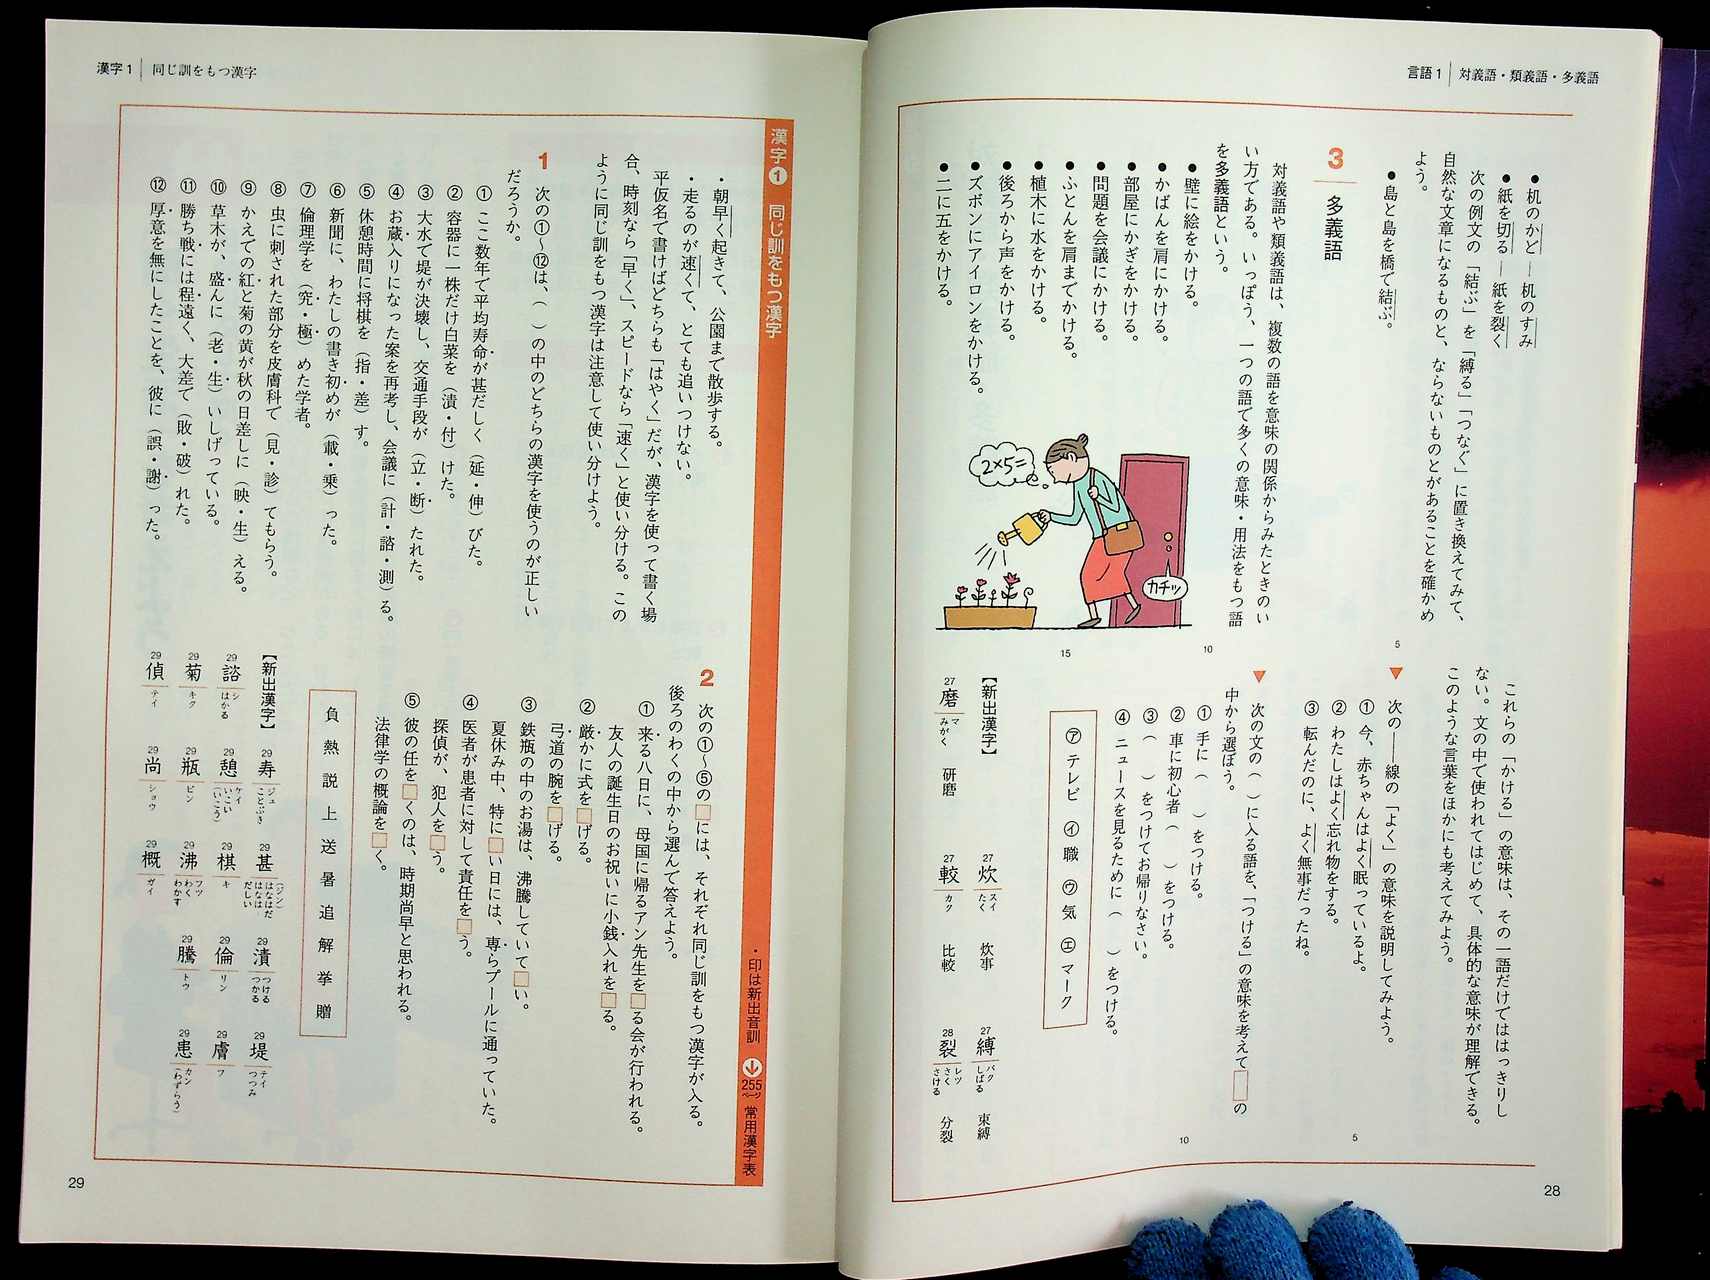 言語1 対義語・類義語・多義語
● 机のかど ― 机のすみ
● 紙を切る ― 紙を裂く
次の例文の「結ぶ」を「縛る」「つなぐ」に置き換えてみて、
自然な文章になるものと、ならないものとがあることを確かめ
よう。
● 島と島を橋で結ぶ。
3 多義語
対義語や類義語は、複数の語を意味の関係からみたときのい
い方である。いっぽう、一つの語で多くの意味・用法をもつ語
を多義語という。
● 壁に絵をかける。
● かばんを肩にかける。
● 部屋にかぎをかける。
● 問題を会議にかける。
● ふとんを肩までかける。
● 植木に水をかける。
● 後ろから声をかける。
● ズボンにアイロンをかける。
● 二に五をかける。
2×5=
カチッ
5
10
15
これらの「かける」の意味は、その一語だけでははっきりし
ない。文の中で使われてはじめて、具体的な意味が理解できる。
このような言葉をほかにも考えてみよう。
▼ 次の――線の「よく」の意味を説明してみよう。
① 今、赤ちゃんはよく眠っているよ。
② わたしはよく忘れ物をする。
③ 転んだのに、よく無事だったね。
▼ 次の文の( )に入る語を、「つける」の意味を考えて□の
中から選ぼう。
① 手に( )をつける。
② 車に初心者( )をつける。
③ ( )をつけてお帰りなさい。
④ ニュースを見るために( )をつける。
㋐ テレビ ㋑ 職 ㋒ 気 ㋓ マーク
5
10
【新出漢字】
27 炊 スイ たく 炊事
27 縛 バク しばる 束縛
27 磨 マ みがく 研磨
27 較 カク 比較
28 裂 レツ さく さける 分裂
28
漢字1 同じ訓をもつ漢字
漢字❶ 同じ訓をもつ漢字
・印は新出音訓 255ページ 常用漢字表
・朝早く起きて、公園まで散歩する。
・走るのが速くて、とても追いつけない。
平仮名で書けばどちらも「はやく」だが、漢字を使って書く場
合、時刻なら「早く」、スピードなら「速く」と使い分ける。この
ように同じ訓をもつ漢字は注意して使い分けよう。
1 次の①〜⑫は、( )の中のどちらの漢字を使うのが正しい
だろうか。
① ここ数年で平均寿命が甚だしく(延・伸)びた。
② 容器に一株だけ白菜を(漬・付)けた。
③ 大水で堤が決壊し、交通手段が(立・断)たれた。
④ お蔵入りになった案を再考し、会議に(計・諮・測)る。
⑤ 休憩時間に将棋を(指・差)す。
⑥ 新聞に、わたしの書き初めが(載・乗)った。
⑦ 倫理学を(究・極)めた学者。
⑧ 虫に刺された部分を皮膚科で(見・診)てもらう。
⑨ かえでの紅と菊の黄が秋の日差しに(映・生)える。
⑩ 草木が、盛んに(老・生)いしげっている。
⑪ 勝ち戦には程遠く、大差で(敗・破)れた。
⑫ 厚意を無にしたことを、彼に(誤・謝)った。
2 次の①〜⑤の□には、それぞれ同じ訓をもつ漢字が入る。
後ろのわくの中から選んで答えよう。
① 来る八日に、母国に帰るアン先生を□る会が行われる。
友人の誕生日のお祝いに小銭入れを□る。
② 厳かに式を□げる。
弓道の腕を□げる。
③ 鉄瓶の中のお湯は、沸騰していて□い。
夏休み中、特に□い日には、専らプールに通っていた。
④ 医者が患者に対して責任を□う。
探偵が、犯人を□う。
⑤ 彼の任を□くのは、時期尚早と思われる。
法律学の概論を□く。
負 熱 説 上 送 暑 追 解 挙 贈
【新出漢字】
29 寿 ジュ ことぶき
29 甚 (ジン) はなはだ はなはだしい
29 漬 つける つかる
29 堤 テイ つつみ
29 諮 シ はかる
29 憩 ケイ いこい (いこう)
29 棋 キ
29 倫 リン
29 膚 フ
29 菊 キク
29 瓶 ビン
29 沸 フツ わく わかす
29 騰 トウ
29 患 カン (わずらう)
29 偵 テイ
29 尚 ショウ
29 概 ガイ
29